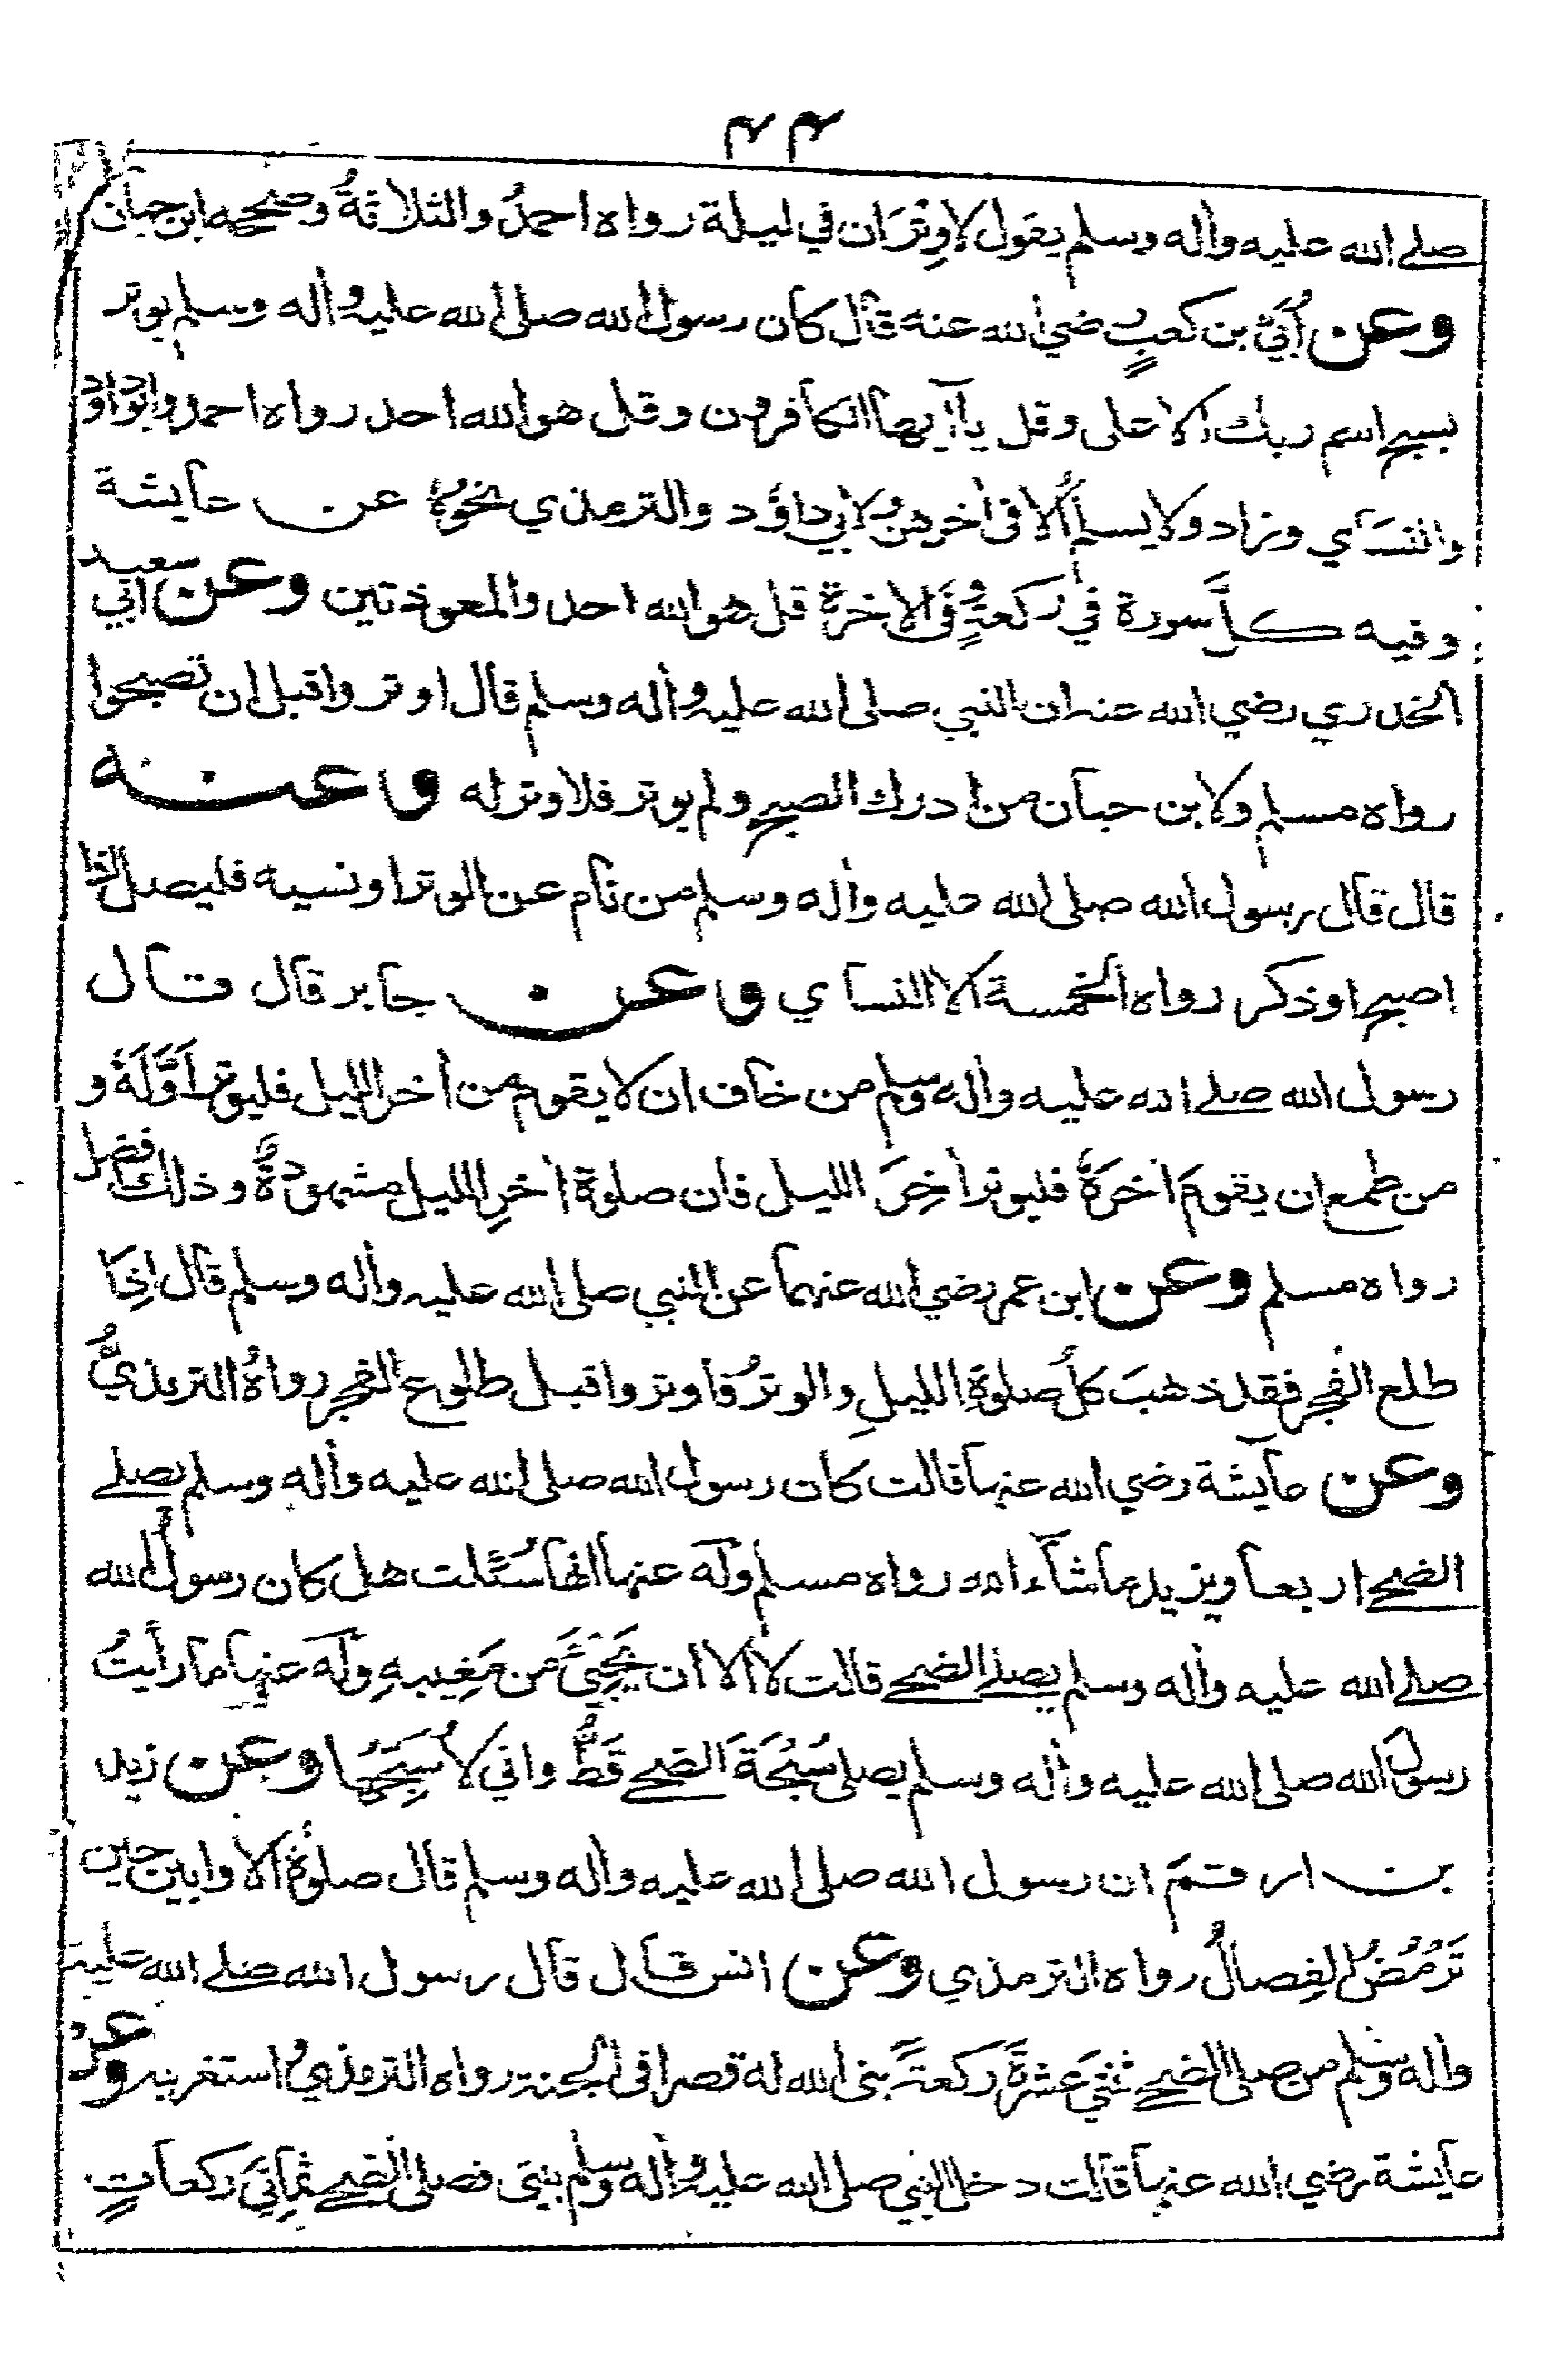 ۴۴
صلے الله عليه واٰله وسلم يقول لا وِتْرَان في ليلة رواه احمدُ والثلاثةُ وصححه ابن حبان
وعن اُبَيّ بن كعبٍ رضي الله عنه قال كان رسول الله صلى الله عليه واٰله وسلم يوتر
بسبح اسم ربك الاعلى وقل يآ ايها الكافرون وقل هو الله احد رواه احمد وابوداود
والنسآي وزاد ولا يسلم الا فى اٰخرهن ولابي داؤد والترمذي نحوهٗ عن عآيشة
وفيه كلَّ سورة في ركعةٍ وفي الاخرة قل هو الله احد والمعوذتين وعن ابي سعيد
الخدري رضي الله عنه ان النبي صلى الله عليه واٰله وسلم قال اوتروا قبل ان تصبحوا
رواه مسلم ولابن حبان من ادرك الصبح ولم يوتر فلا وتر له وعنه
قال قال رسول الله صلى الله عليه واٰله وسلم من نام عن الوتر او نسيه فليصل اذا
اصبح او ذكر رواه الخمسة الا النساي وعن جابر قال قال
رسول الله صلے الله عليه واٰله وسلم من خاف ان لا يقوم من اٰخر الليل فليوتر اَوَّلَهٗ و
من طمع ان يقومَ اٰخرَهٗ فليوتر اٰخِرَ الليل فان صلوة اٰخرِ الليل مشهودةٌ وذلك افضل
رواه مسلم وعن ابن عمر رضي الله عنهما عن النبي صلى الله عليه واٰله وسلم قال اِذا
طلع الفجر فقد ذهبَ كلُ صلوةِ الليلِ والوترُ فاوتروا قبل طلوع الفجر رواهُ الترمذيُّ
وعن عآيشة رضي الله عنها قالت كان رسول الله صلى الله عليه واٰله وسلم يصلے
الضحے اربعا ويزيد ما شآء الله رواه مسلم وله عنها انها سُئلت هل كان رسول الله
صلے الله عليه واٰله وسلم يصلے الضحے قالت لا الا ان يَّجِيْئَ من مَغِيبهِ وله عنها ما رأيتُ
رسول الله صلى الله عليه واٰله وسلم يصلى سُبْحَةَ الضحے قَطُّ واني لاُسَبِّحُها وعن زيد
بن ارقم ان رسول الله صلى الله عليه واٰله وسلم قال صلوةُ الاوابين حين
تَرْمُضُ الفِصالُ رواه الترمذي وعن انس قال قال رسول الله صلے الله عليه
واٰله وسلم من صلى الضحے ثنتيَ عشرةَ ركعةً بنى الله له قصرا فى الجنة رواه الترمذي واستغربه وعن
عآيشة رضي الله عنها قالت دخل النبي صلى الله عليه واٰله وسلم بيتى فصلى الضحے ثمانيَ ركعاتٍ